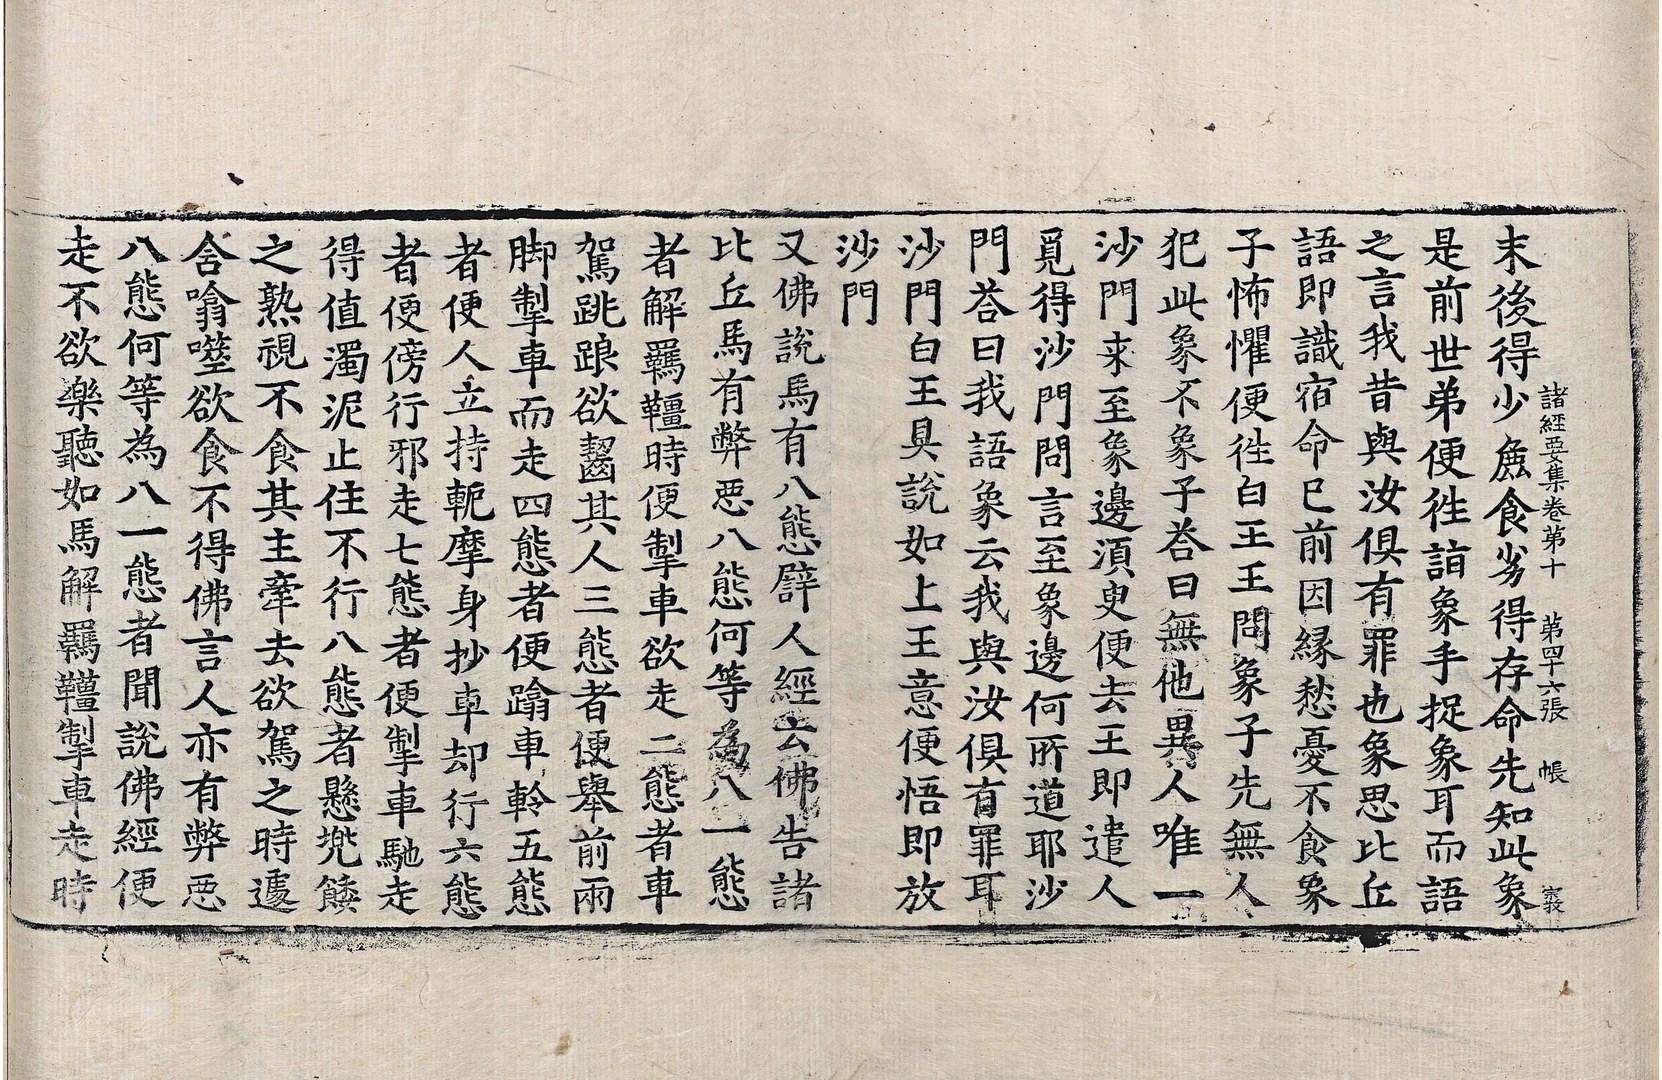 諸經要集卷第十 第四十六張 帳
末後得少麁食劣得存命先知此象
是前世弟便徃詣象手捉象耳而語
之言我昔與汝俱有罪也象思比丘
語即識宿命已前因縁愁憂不食象
子怖懼便徃白王王問象子先無人
犯此象不象子荅曰無他異人唯一
沙門来至象邊湏臾便去王即遣人
覓得沙門問言至象邊何所道耶沙
門荅曰我語象云我與汝俱有罪耳
沙門白王具說如上王意便悟即放
沙門
又佛說馬有八態譬人經云佛告諸
比丘馬有弊惡八態何等為八一態
者解羈韁時便掣車欲走二態者車
駕跳踉欲齧其人三態者便舉前兩
脚掣車而走四態者便蹹車軨五態
者便人立持軛摩身抄車却行六態
者便傍行邪走七態者便掣車馳走
得值濁泥止住不行八態者懸兠餧
之熟視不食其主牽去欲駕之時遽
含噏噬欲食不得佛言人亦有弊惡
八態何等為八一態者聞說佛經便
走不欲樂聽如馬解羈韁掣車走時